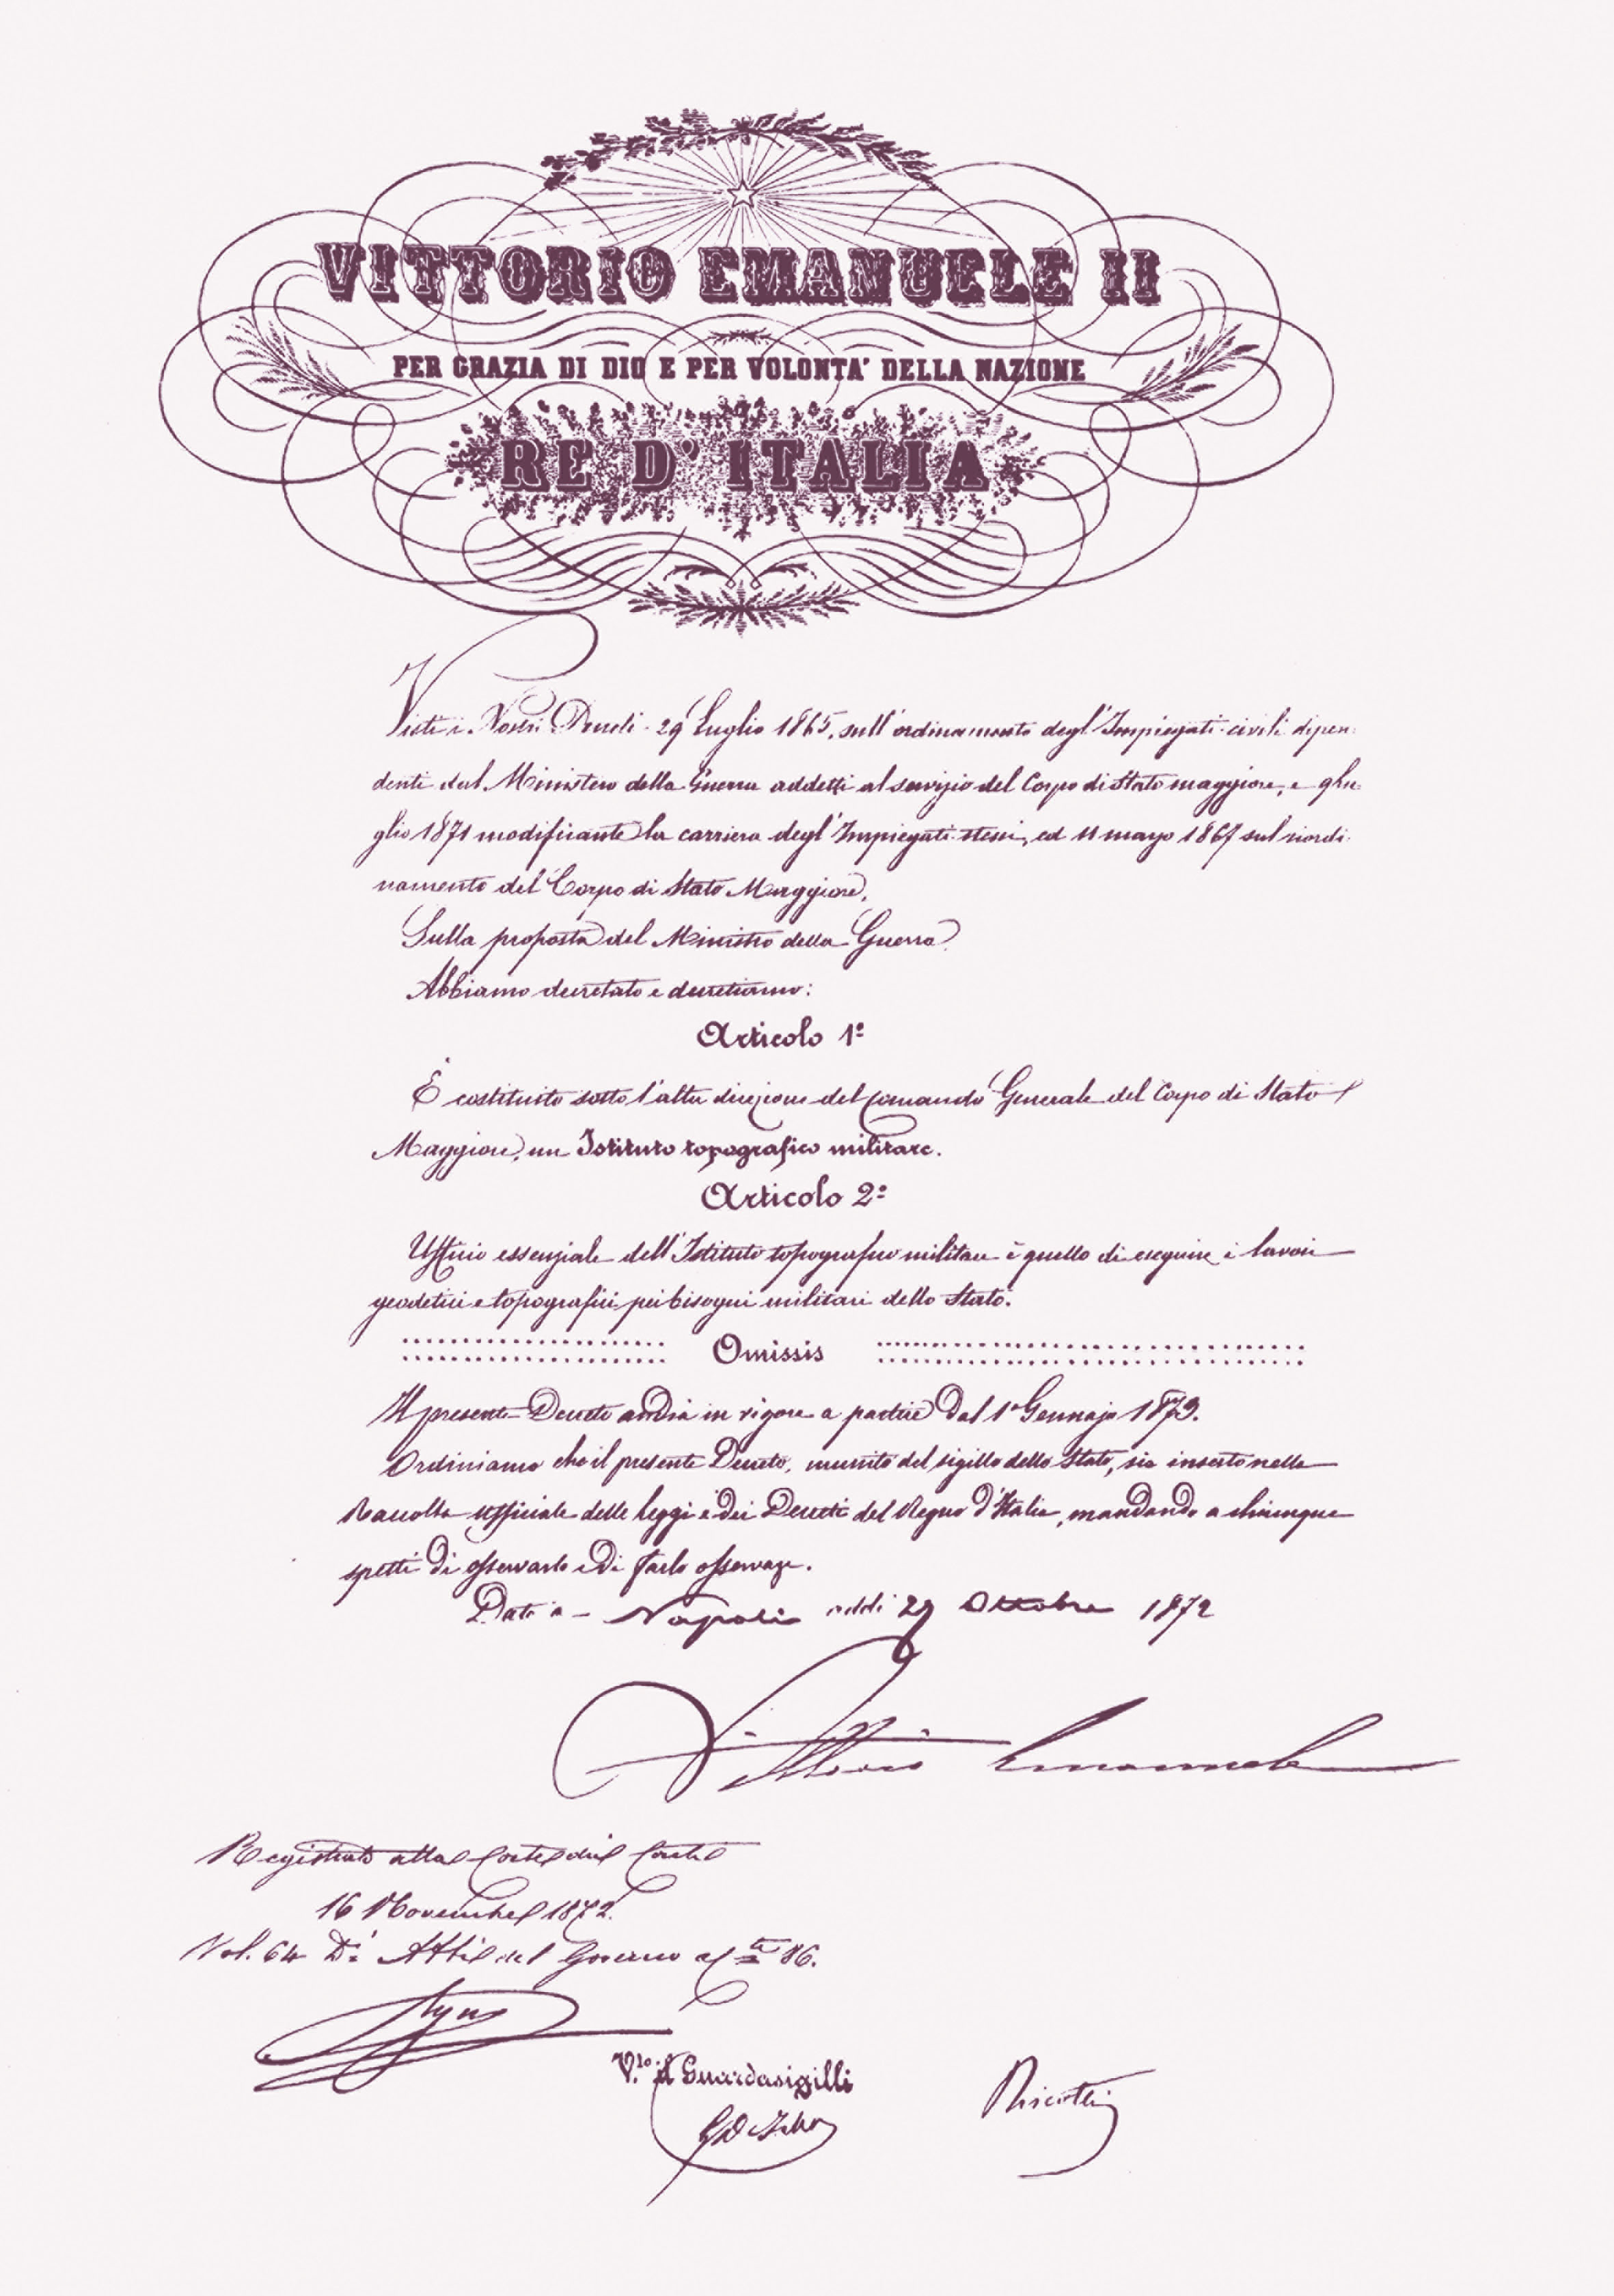 VITTORIO EMANUELE II
PER GRAZIA DI DIO E PER VOLONTA' DELLA NAZIONE
RE D'ITALIA
Visti i Nostri Decreti 29 Luglio 1865, sull'ordinamento degl'Impiegati civili dipen-
denti dal Ministero della Guerra addetti al servizio del Corpo di Stato maggiore, e
glio 1871 modificante la carriera degl'Impiegati stessi, ed 11 marzo 1867 sul riordi-
namento del Corpo di Stato Maggiore,
Sulla proposta del Ministro della Guerra
Abbiamo decretato e decretiamo:
Articolo 1º
È costituito sotto l'alta direzione del Comando Generale del Corpo di Stato
Maggiore, un Istituto topografico militare.
Articolo 2º
Ufficio essenziale dell'Istituto topografico militare è quello di eseguire i lavori
geodetici e topografici pei bisogni militari dello Stato.
Omissis
Il presente Decreto andrà in vigore a partire dal 1º Gennajo 1873.
Ordiniamo che il presente Decreto, munito del sigillo dello Stato, sia inserto nella
Raccolta ufficiale delle leggi e dei Decreti del Regno d'Italia, mandando a chiunque
spetti di osservarlo e di farlo osservare.
Dato a - Napoli addì 27 Ottobre 1872
Vittorio Emanuele
Registrato alla Corte dei Conti
16 Novembre 1872.
Vol. 64 Atti del Governo a 86.
Ayres
V.to il Guardasigilli
Ricotti